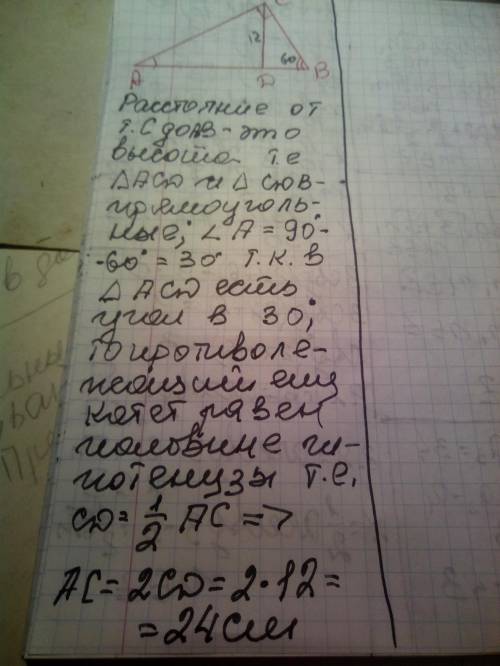 C
12
60
A
D
B
Расстояние от
т. С до АВ - это
высота т.е
△ACD и △CDB -
прямоуголь-
ные; ∠A = 90° -
- 60° = 30° т.к. в
△ACD есть
угол в 30°,
то противоле-
жащий ему
катет равен
половине ги-
потенузы т.е.
CD = 1/2 AC =>
AC = 2CD = 2·12 =
= 24 см